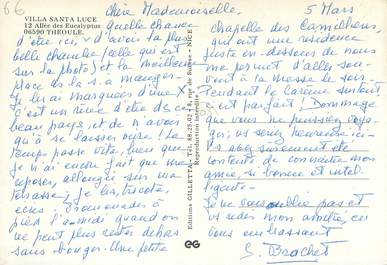 66
VILLA SANTA LUCE
12 Allée des Eucalyptus
06590 THEOULE.
Chère Mademoiselle
5 Mars
quelle chance
d'être ici, d'avoir la plus
belle chambre (celle qui est
sur la photo) et la meilleure
place ds la s. à manger.
Je les ai marquées d'une X.
C'est un rêve d'être ds ce
beau pays et de n'avoir
qu'à se laisser vivre! Le
temps passe vite, bien que
je n'ai encore fait que me
reposer, allongée sur ma
terrasse, je lis, tricote,
écris; promenades à
pied l'a-midi quand on
ne peut plus rester dehors
sans bouger. Une petite
chapelle des Camilliens,
qui ont une résidence
juste en-dessous de nous
me permet d'aller sou-
vent à la messe le soir.
Pendant le Carême surtout,
c'est parfait! Dommage
que vous ne puissiez
qui, vs serez heureuse ici-
Vs avez sûrement
contents de connaître mon
amie, si bonne et intel
ligente-
Je ne vous oublie pas et
vs redis mon amitié en
vous embrassant
S. Brachet
Editions GILLETTA, Tél. 88.25.02 - 8, rue de Suisse - NICE
Reproduction interdite
eG